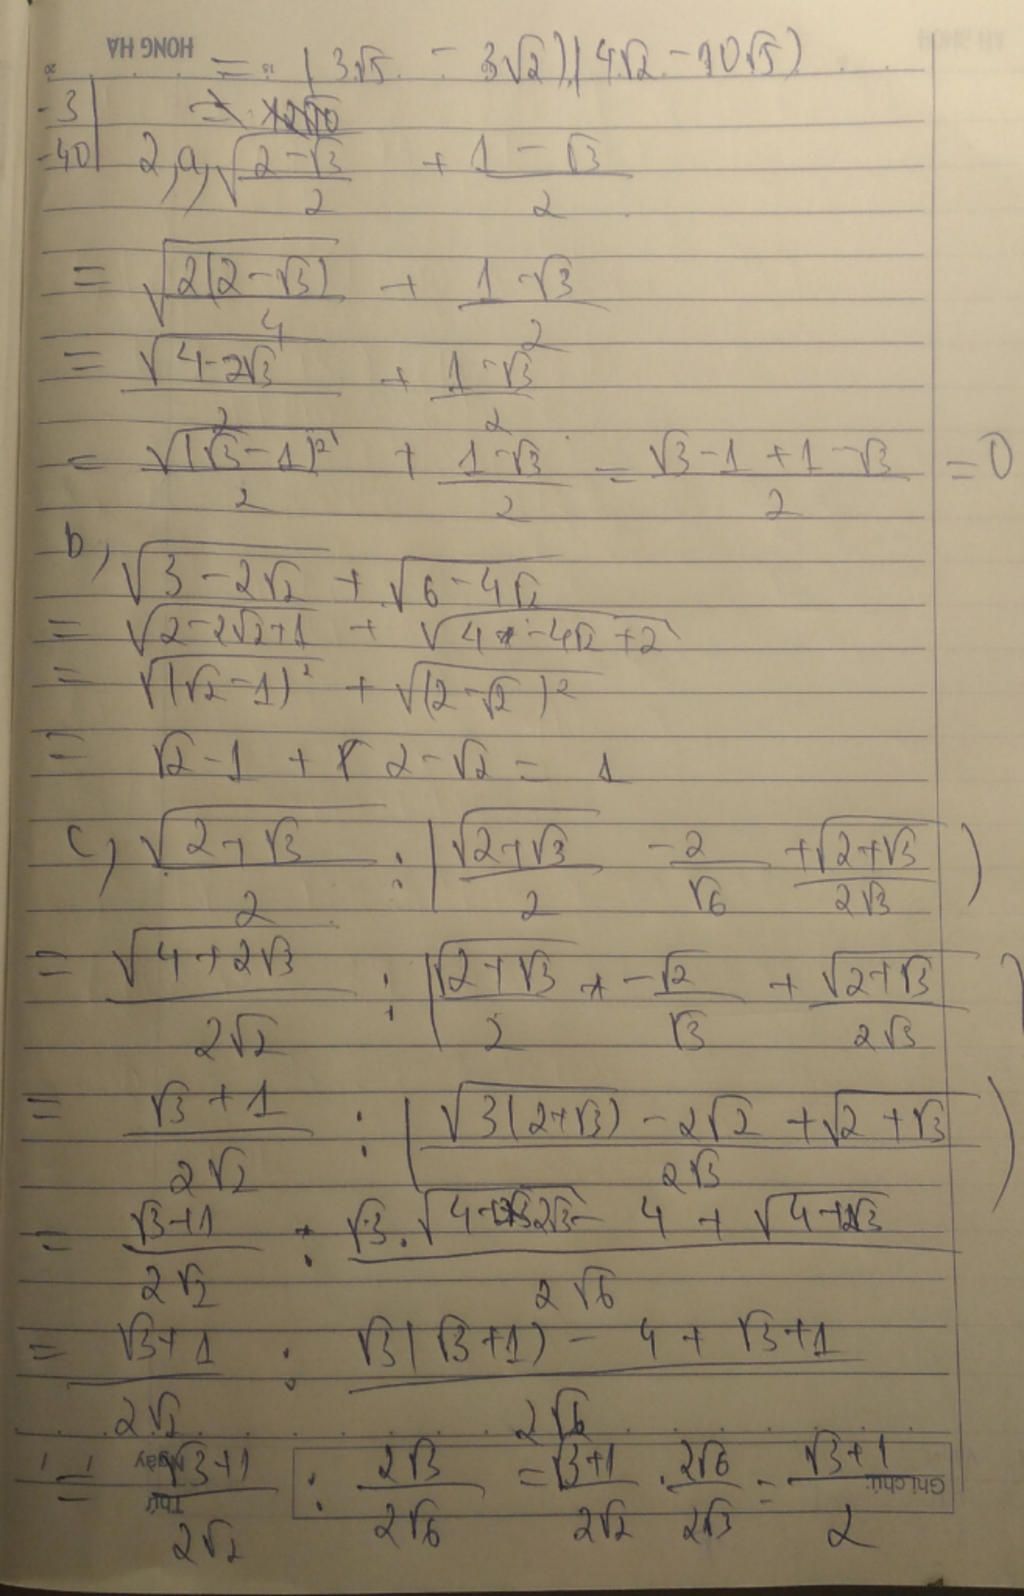 HONG HA
= (3√5 - 3√2)(4√2 - 10√5)
-3
-40
2, a, √((2-√3)/2) + (1-√3)/2
= √(2(2-√3)/4) + (1-√3)/2
= √(4-2√3)/2 + (1-√3)/2
= √((√3-1)²)/2 + (1-√3)/2 = (√3-1+1-√3)/2 = 0
b, √(3-2√2) + √(6-4√2)
= √(2-2√2+1) + √(4-4√2+2)
= √((√2-1)²) + √((2-√2)²)
= √2-1 + 2-√2 = 1
c, √(2+√3)/2 : (√(2+√3)/2 - 2/√6 + √(2+√3)/(2√3))
= √(4+2√3)/(2√2) : (√(2+√3)/2 - √2/√3 + √(2+√3)/(2√3))
= (√3+1)/(2√2) : ((√3(2+√3) - 2√2 + √(2+√3))/(2√3))
= (√3+1)/(2√2) : (√3.√(4+2√3) - 4 + √(4+2√3))/(2√6)
= (√3+1)/(2√2) : (√3(√3+1) - 4 + √3+1)/(2√6)
= (√3+1)/(2√2) : (2√3)/(2√6) = (√3+1)/(2√2) . (2√6)/(2√3) = (√3+1)/2
Thứ
Ngày
Ghi chú: